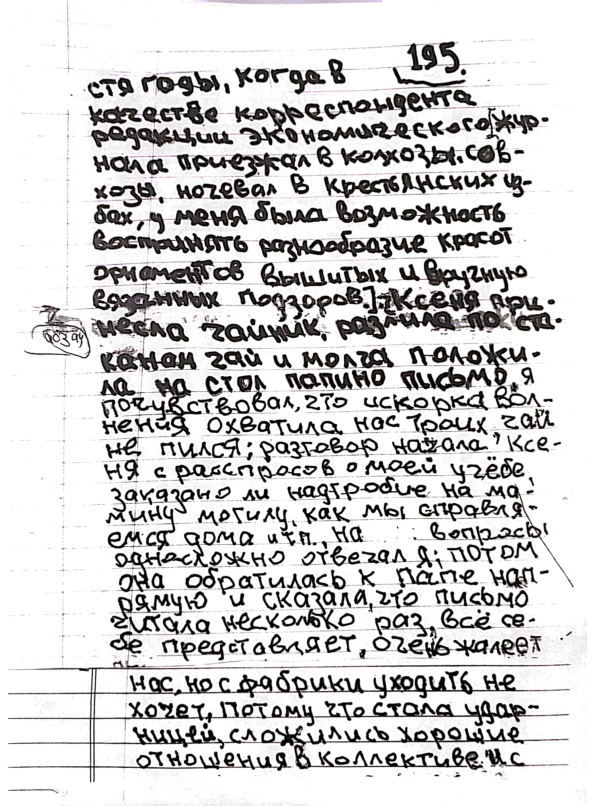 195.
стя годы, когда в
качестве корреспондента
редакции экономического [жур-
нала приезжал в колхозы, сов-
хозы, ночевал в крестьянских из-
бах, у меня была возможность
воспринять разнообразие красот
орнаментов вышитых и вручную
вязанных подзоров.] Ксеня при-
несла чайник, разлила по ста-
канам чай и молча положи-
ла на стол папино письмо. Я
почувствовал, что искорка вол-
нения охватила нас троих, чай
не пился; разговор начала Ксе-
ня с расспросов о моей учёбе,
заказано ли надгробие на ма-
мину могилу, как мы справля-
емся дома и т.п., на вопросы
односложно отвечал я; потом
она обратилась к папе нап-
рямую и сказала, что письмо
читала несколько раз, всё се-
бе представляет, очень жалеет
нас, но с фабрики уходить не
хочет, потому что стала удар-
ницей, сложились хорошие
отношения в коллективе и с